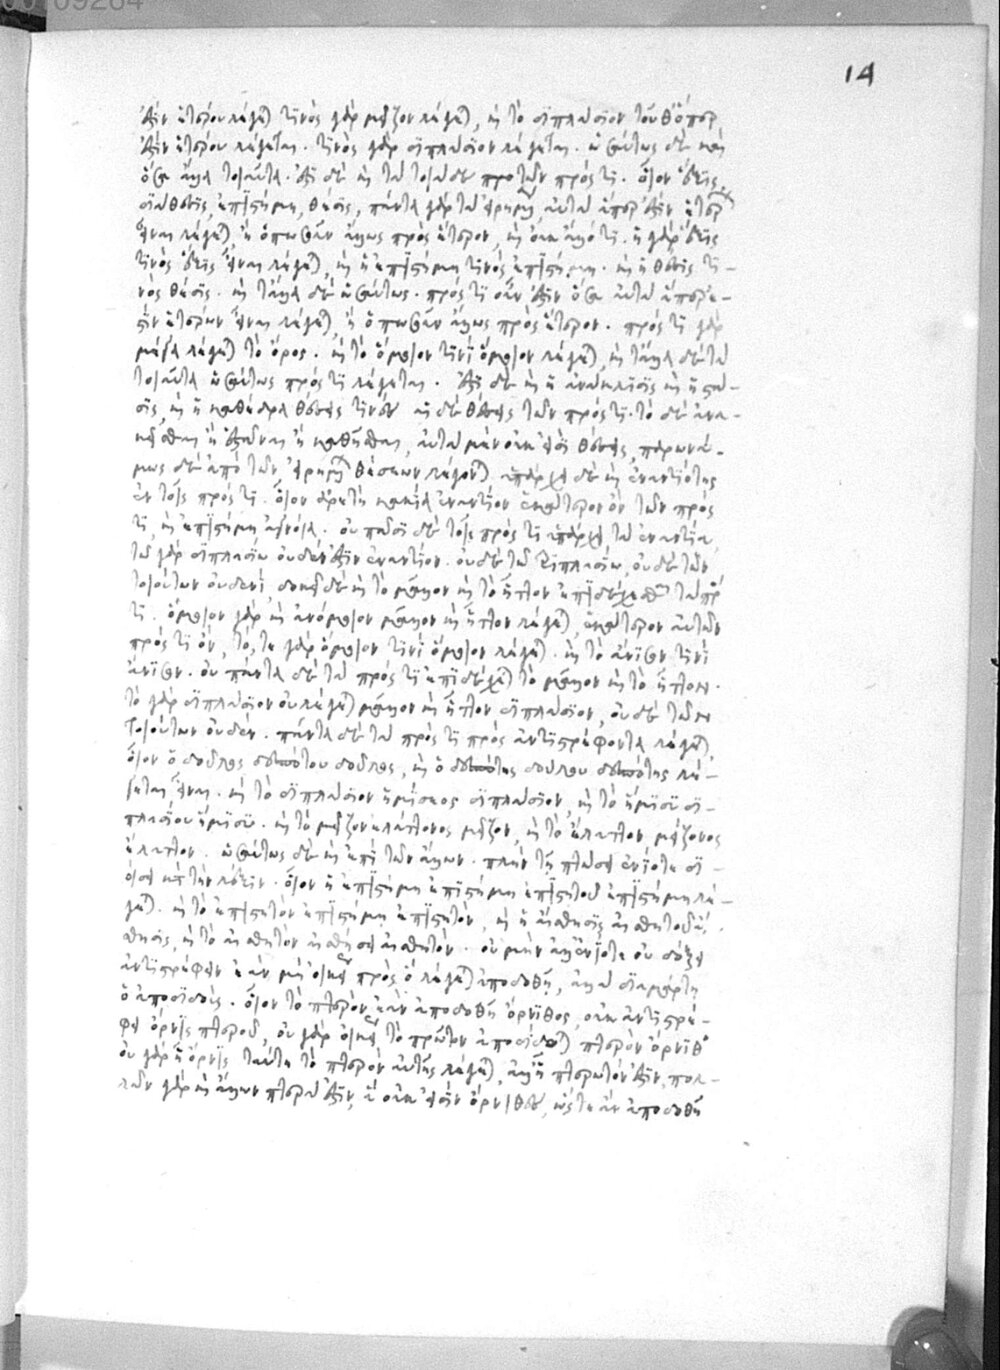 14
ἐστὶν ἑτέρου λέγεται τινὸς γὰρ μεῖζον λέγεται, καὶ τὸ διπλάσιον τοῦθ' ὅπερ
ἐστὶν ἑτέρου λέγεται. τινὸς γὰρ διπλάσιον λέγεται. ὡσαύτως δὲ καὶ
ὅσα ἄλλα τοιαῦτα. ἔστι δὲ καὶ τὰ τοιαῦτα τῶν πρός τι. οἷον ἕξις,
διάθεσις, ἐπιστήμη, θέσις, πάντα γὰρ τὰ εἰρημένα, αὐτὰ ἅπερ ἐστὶν ἑτέρων
εἶναι λέγεται, ἢ ὁπωσοῦν ἄλλως πρὸς ἕτερον, καὶ οὐκ ἄλλό τι. ἡ γὰρ ἕξις
τινὸς ἕξις εἶναι λέγεται, καὶ ἡ ἐπιστήμη τινὸς ἐπιστήμη. καὶ ἡ θέσις τι-
νὸς θέσις. καὶ τἄλλα δὲ ὡσαύτως. πρός τι οὖν ἐστὶν ὅσα αὐτὰ ἅπερ ἐ-
στὶν ἑτέρων εἶναι λέγεται, ἢ ὁπωσοῦν ἄλλως πρὸς ἕτερον. πρός τι γὰρ
μέγα λέγεται τὸ ὄρος. καὶ τὸ ὅμοιον τινὶ ὅμοιον λέγεται, καὶ τἄλλα δὲ τὰ
τοιαῦτα ὡσαύτως πρός τι λέγεται. ἔστι δὲ καὶ ἡ ἀνάκλισις καὶ ἡ στά-
σις, καὶ ἡ καθέδρα θέσεις τινές αἱ δὲ θέσεις τῶν πρός τι. τὸ δὲ ἀνα-
κεῖσθαι ἢ ἑστάναι ἢ καθῆσθαι, αὐτὰ μὲν οὐκ εἰσὶ θέσεις, παρωνύ-
μως δὲ ἀπὸ τῶν εἰρημένων θέσεων λέγονται. ὑπάρχει δὲ καὶ ἐναντιότης
ἐν τοῖς πρός τι. οἷον ἀρετὴ κακίᾳ ἐναντίον ἑκάτερον ὂν τῶν πρός
τι, καὶ ἐπιστήμη ἀγνοίᾳ. οὐ πᾶσι δὲ τοῖς πρός τι ὑπάρχει τὰ ἐναντία,
τῷ γὰρ διπλασίῳ οὐδέν ἐστιν ἐναντίον. οὐδὲ τῷ τριπλασίῳ, οὐδὲ τῶν
τοιούτων οὐδενί, δοκεῖ δὲ καὶ τὸ μᾶλλον καὶ τὸ ἧττον ἐπιδέχεσθαι τὰ πρός
τι. ὅμοιον γὰρ καὶ ἀνόμοιον μᾶλλον καὶ ἧττον λέγεται, ἑκάτερον αὐτῶν
πρός τι ὄν, τό, τε γὰρ ὅμοιον τινὶ ὅμοιον λέγεται. καὶ τὸ ἄνισον τινὶ
ἄνισον. οὐ πάντα δὲ τὰ πρός τι ἐπιδέχεται τὸ μᾶλλον καὶ τὸ ἧττον.
τὸ γὰρ διπλάσιον οὐ λέγεται μᾶλλον καὶ ἧττον διπλάσιον, οὐδὲ τῶν
τοιούτων οὐδέν. πάντα δὲ τὰ πρός τι πρὸς ἀντιστρέφοντα λέγεται,
οἷον ὁ δοῦλος δεσπότου δοῦλος, καὶ ὁ δεσπότης δούλου δεσπότης λέ-
γεται εἶναι. καὶ τὸ διπλάσιον ἡμίσεος διπλάσιον, καὶ τὸ ἥμισυ δι-
πλασίου ἥμισυ. καὶ τὸ μεῖζον ἐλάττονος μεῖζον, καὶ τὸ ἔλαττον μείζονος
ἔλαττον. ὡσαύτως δὲ καὶ ἐπὶ τῶν ἄλλων. πλὴν τῇ πτώσει ἐνίοτε δι-
οίσει κατὰ τὴν λέξιν. οἷον ἡ ἐπιστήμη ἐπιστήμη ἐπιστητοῦ ἐπιστήμη λέ-
γεται. καὶ τὸ ἐπιστητὸν ἐπιστήμῃ ἐπιστητόν, καὶ ἡ αἴσθησις αἰσθητοῦ αἴ-
σθησις, καὶ τὸ αἰσθητὸν αἰσθήσει αἰσθητόν. οὐ μὴν ἀλλ' ἐνίοτε οὐ δόξει
ἀντιστρέφειν ἐὰν μὴ οἰκείως πρὸς ὃ λέγεται ἀποδοθῇ, ἀλλὰ διαμάρτῃ
ὁ ἀποδιδούς. οἷον τὸ πτερὸν ἐὰν ἀποδοθῇ ὄρνιθος, οὐκ ἀντιστρέ-
φει ὄρνις πτεροῦ, οὐ γὰρ οἰκείως τὸ πρῶτον ἀποδίδοται πτερὸν ὄρνιθος
οὐ γὰρ ᾗ ὄρνις ταύτῃ τὸ πτερὸν αὐτῆς λέγεται, ἀλλ' ᾗ πτερωτόν ἐστιν, πολ-
λῶν γὰρ καὶ ἄλλων πτερά ἐστιν, ἃ οὐκ εἰσὶν ὄρνιθες, ὥστε ἂν ἀποδοθῇ